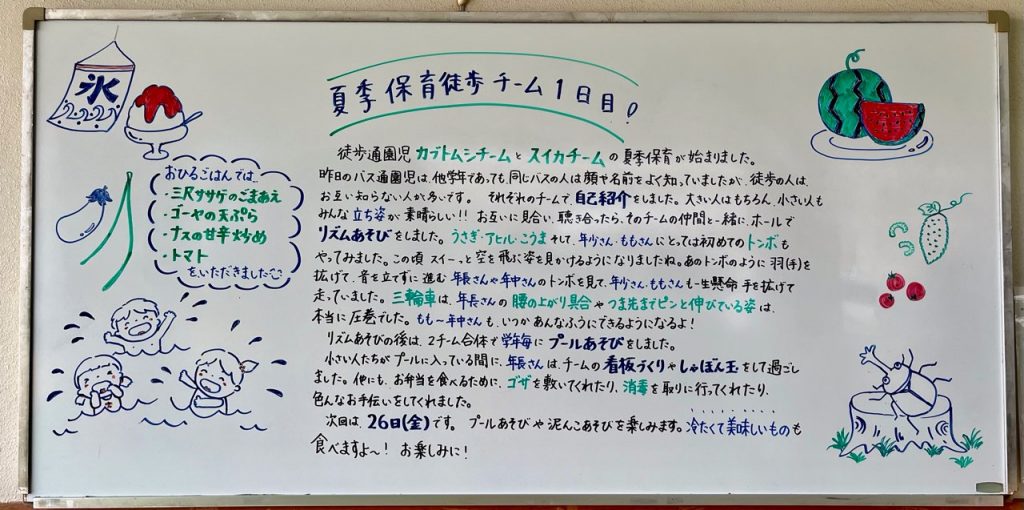 氷
夏季保育徒歩チーム1日目!
徒歩通園児 カブトムシチームと スイカチームの 夏季保育が始まりました。
昨日のバス通園児は、他学年であっても、同じバスの人は顔や名前をよく知っていましたが、徒歩の人は、
お互い知らない人が多いです。 それぞれのチームで、自己紹介をしました。大きい人はもちろん、小さい人も
みんな立ち姿が素晴らしい!! お互いに見合い、聴き合ったら、そのチームの仲間と一緒に、ホールで
リズムあそびをしました。うさぎ・アヒル・こうま そして、年少さん・ももさんにとっては初めてのトンボも
やってみました。この頃 スイーっと空を飛ぶ姿を見かけるようになりましたね。あのトンボのように 羽(手)を
拡げて、音を立てずに進む 年長さんや年中さんのトンボを見て、年少さん、ももさんも一生懸命 手を拡げて
走っていました。三輪車は、年長さんの 腰の上がり具合や つま先までピンと伸びている姿は、
本当に圧巻でした。もも〜年中さんも、いつかあんなふうにできるようになるよ!
リズムあそびの後は、2チーム合体で学年毎にプールあそびをしました。
小さい人たちがプールに入っている間に、年長さんは、チームの看板づくりやしゃぼん玉をして過ごし
ました。他にも、お弁当を食べるために、ゴザを敷いてくれたり、消毒を取りに行ってくれたり、
色んなお手伝いをしてくれました。
次回は、26日(金)です。 プールあそびや泥んこあそびを楽しみます。冷たくて美味しいものも
食べますよ〜! お楽しみに!
おひるごはんでは…
・三尺ササゲのごまあえ
・ゴーヤの天ぷら
・ナスの甘辛炒め
・トマト
をいただきました